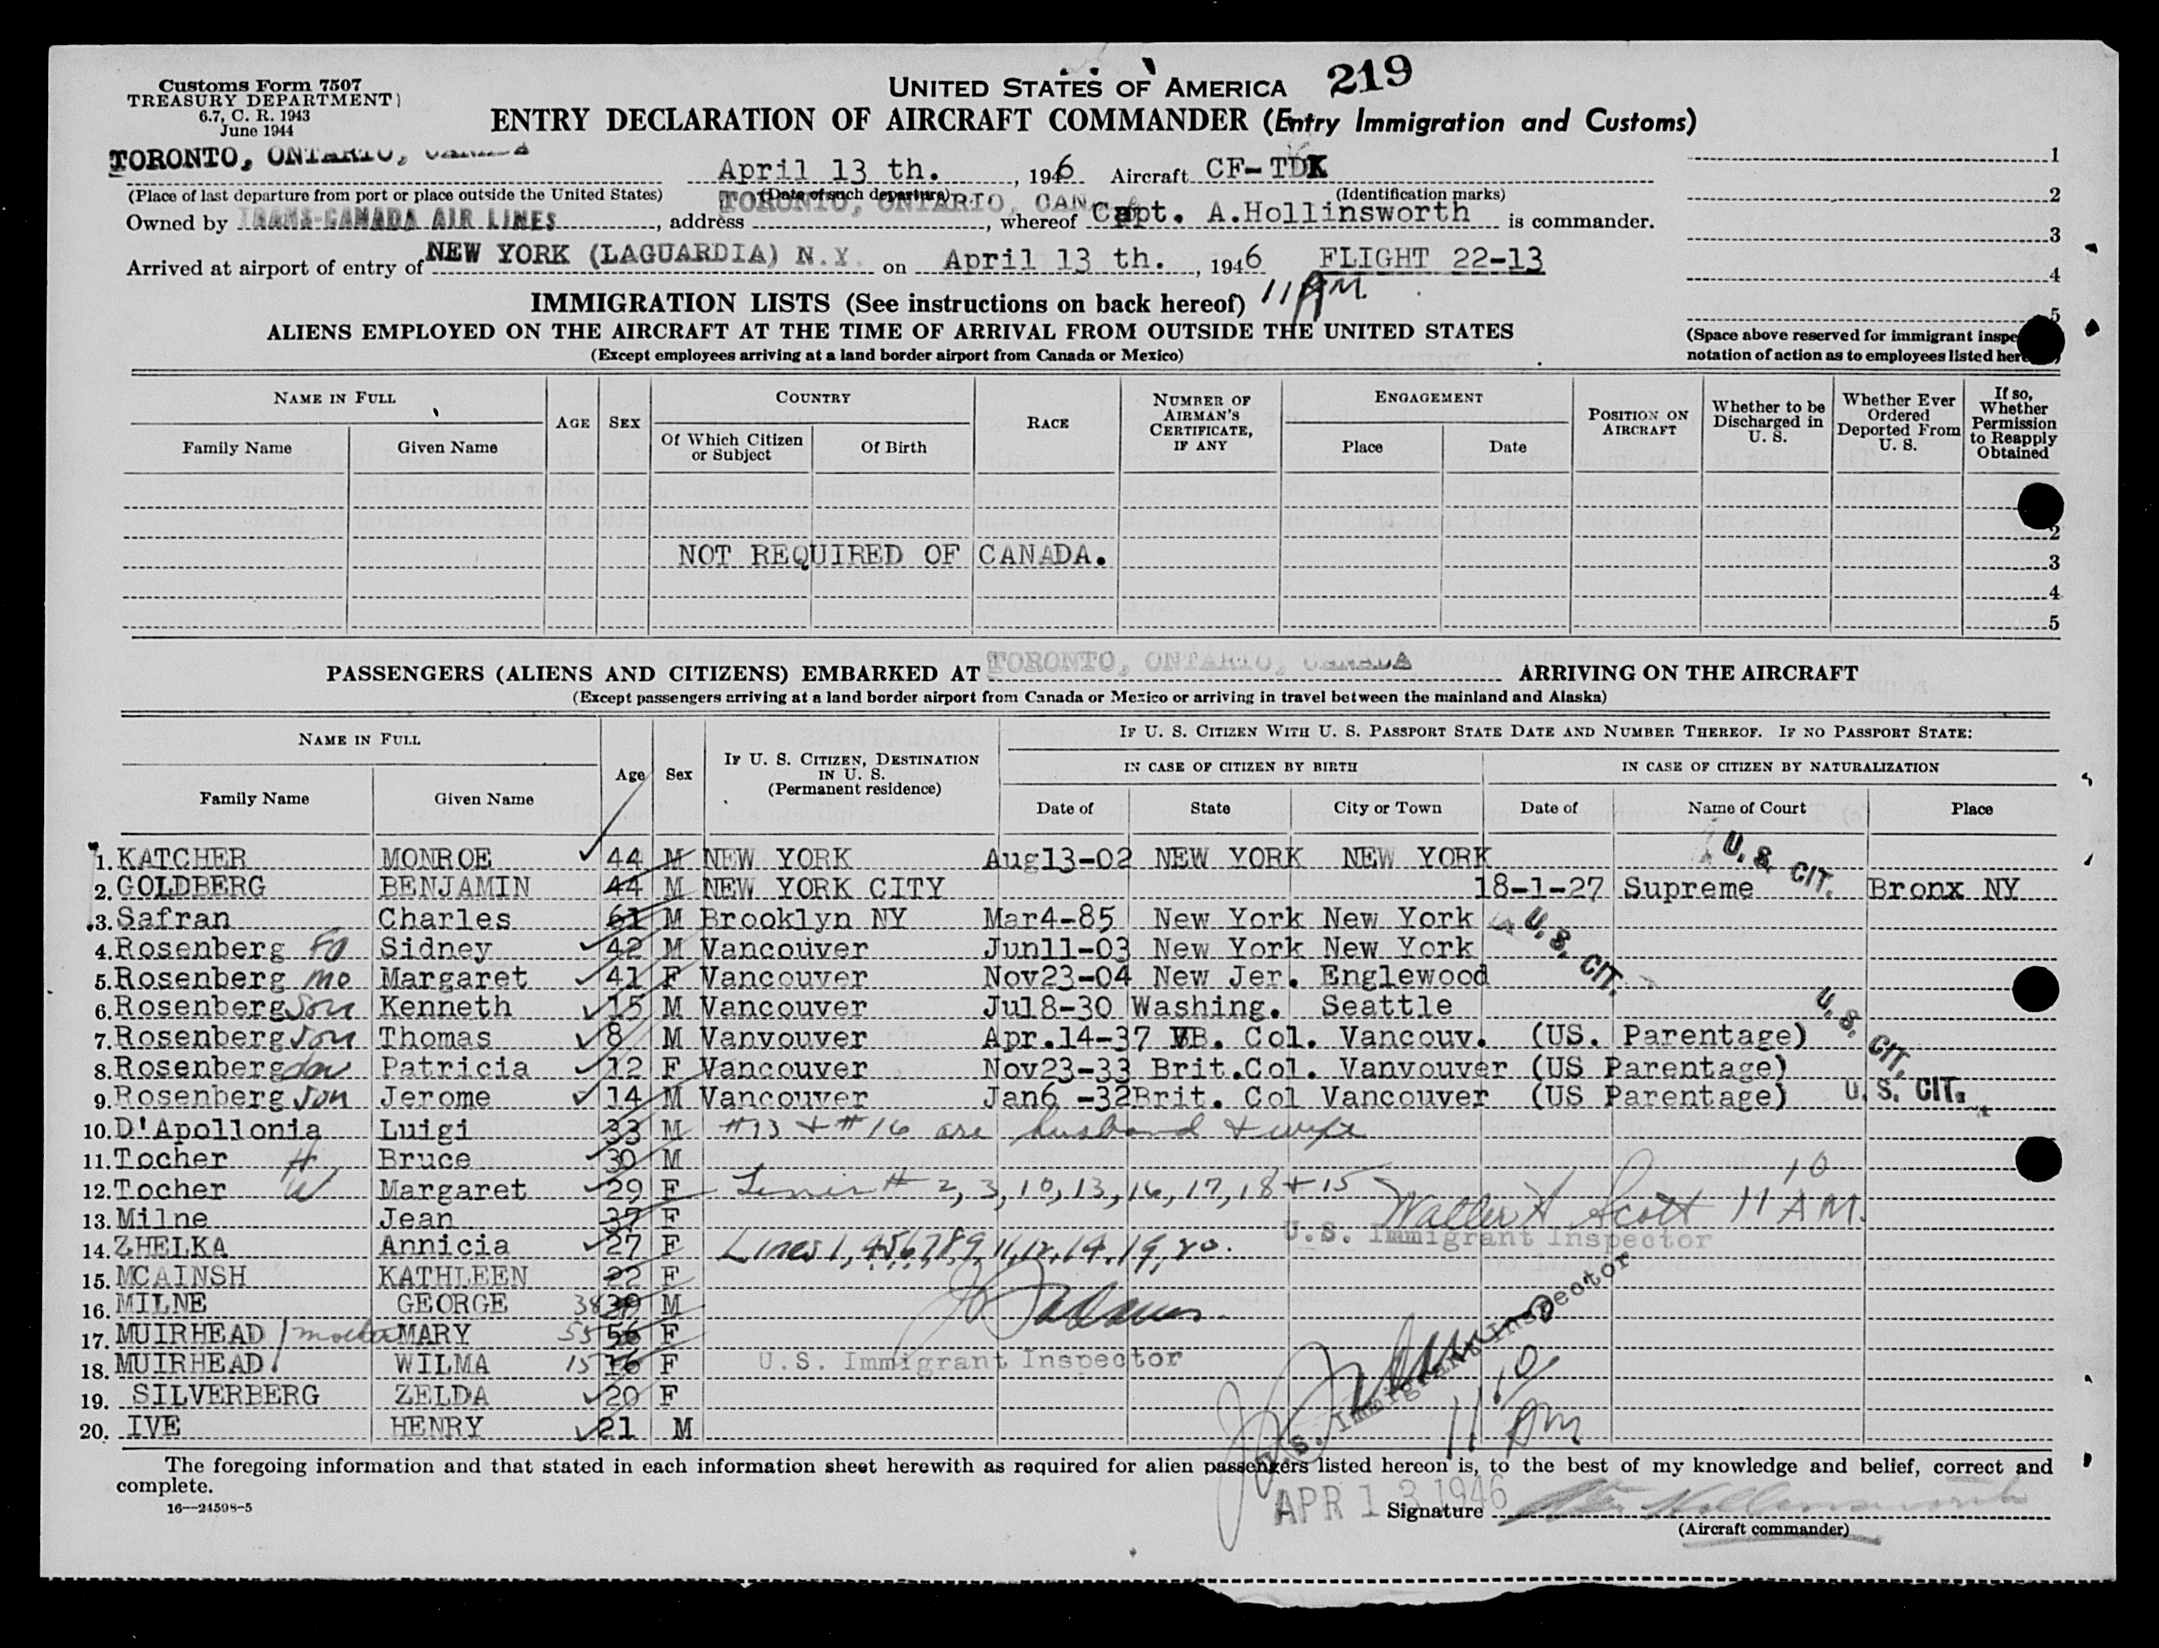 Customs Form 7507
TREASURY DEPARTMENT
6.7, C. R. 1943
June 1944
UNITED STATES OF AMERICA 219
ENTRY DECLARATION OF AIRCRAFT COMMANDER (Entry Immigration and Customs)
TORONTO, ONTARIO, CANADA April 13 th. , 1946 Aircraft CF-TDK
(Place of last departure from port or place outside the United States) (Date of such departure) (Identification marks)
Owned by TRANS-CANADA AIR LINES , address TORONTO, ONTARIO, CANADA , whereof Capt. A.Hollinsworth is commander.
Arrived at airport of entry of NEW YORK (LAGUARDIA) N.Y. on April 13 th. , 1946 FLIGHT 22-13
1
2
3
4
5
(Space above reserved for immigrant
notation of action as to employees listed
IMMIGRATION LISTS (See instructions on back hereof) 11 PM
ALIENS EMPLOYED ON THE AIRCRAFT AT THE TIME OF ARRIVAL FROM OUTSIDE THE UNITED STATES
(Except employees arriving at a land border airport from Canada or Mexico)
NAME IN FULL AGE SEX COUNTRY RACE NUMBER OF AIRMAN'S CERTIFICATE, IF ANY ENGAGEMENT POSITION ON AIRCRAFT Whether to be Discharged in U. S. Whether Ever Ordered Deported From U. S. If so, Whether Permission to Reapply Obtained
Family Name Given Name Of Which Citizen or Subject Of Birth Place Date
2
NOT REQUIRED OF CANADA. 3
4
5
PASSENGERS (ALIENS AND CITIZENS) EMBARKED AT TORONTO, ONTARIO, CANADA ARRIVING ON THE AIRCRAFT
(Except passengers arriving at a land border airport from Canada or Mexico or arriving in travel between the mainland and Alaska)
NAME IN FULL Age Sex IF U. S. CITIZEN, DESTINATION IN U. S. (Permanent residence) IF U. S. CITIZEN WITH U. S. PASSPORT STATE DATE AND NUMBER THEREOF. IF NO PASSPORT STATE:
IN CASE OF CITIZEN BY BIRTH IN CASE OF CITIZEN BY NATURALIZATION
Family Name Given Name Date of State City or Town Date of Name of Court Place
1. KATCHER MONROE 44 M NEW YORK Aug13-02 NEW YORK NEW YORK U. S. CIT.
2. GOLDBERG BENJAMIN 44 M NEW YORK CITY 18-1-27 Supreme Bronx NY
3. Safran Charles 61 M Brooklyn NY Mar4-85 New York New York U. S. CIT.
4. Rosenberg Fa Sidney 42 M Vancouver Jun11-03 New York New York
5. Rosenberg mo Margaret 41 F Vancouver Nov23-04 New Jer. Englewood
6. Rosenberg son Kenneth 15 M Vancouver Jul8-30 Washing. Seattle
7. Rosenberg son Thomas 8 M Vanvouver Apr.14-37 B. Col. Vancouv. (US. Parentage) U. S. CIT.
8. Rosenberg dau Patricia 12 F Vancouver Nov23-33 Brit.Col. Vanvouver (US Parentage)
9. Rosenberg son Jerome 14 M Vancouver Jan6 -32Brit. Col Vancouver (US Parentage) U. S. CIT.
10. D'Apollonia Luigi 33 M #13 + #16 are husband + wife
11. Tocher H Bruce 30 M
12. Tocher W Margaret 29 F Lines # 2, 3, 10, 13, 16, 17, 18 + 15 Walter H Scott 11 10 AM.
13. Milne Jean 37 F U.S. Immigrant Inspector
14. ZHELKA Annicia 27 F Lines 1, 4 5 6 7 8 9, 11, 12, 14, 19, 20.
15. MCAINSH KATHLEEN 22 F
16. MILNE GEORGE 38 39 M
17. MUIRHEAD mother MARY 55 56 F
18. MUIRHEAD WILMA 15 16 F U.S. Immigrant Inspector U. S. Immigrant Inspector
19. SILVERBERG ZELDA 20 F 11 10
20. IVE HENRY 21 M PM
The foregoing information and that stated in each information sheet herewith as required for alien passengers listed hereon is, to the best of my knowledge and belief, correct and
complete.
16—24598-5 APR 13 1946 Signature Hollinsworth
(Aircraft commander)